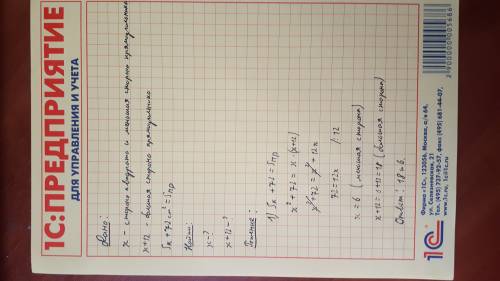 1С:ПРЕДПРИЯТИЕ
ДЛЯ УПРАВЛЕНИЯ И УЧЕТА
Дано:
x - сторона квадрата и меньшая сторона прямоугольника
x+12 - большая сторона прямоугольника
Sк + 72 см² = Sпр
Найти:
x - ?
x+12 - ?
Решение:
1) Sк + 72 = Sпр
x² + 72 = x · (x+12)
x² + 72 = x² + 12x
72 = 12x /:12
x = 6 (меньшая сторона)
x+12 = 6+12 = 18 (большая сторона)
Ответ: 18 и 6.
1С
Фирма «1С», 123056, Москва, а/я 64,
ул. Селезневская, 21
Тел. (495) 737-92-57, факс (495) 681-44-07,
www.1c.ru, 1c@1c.ru
2900000005686